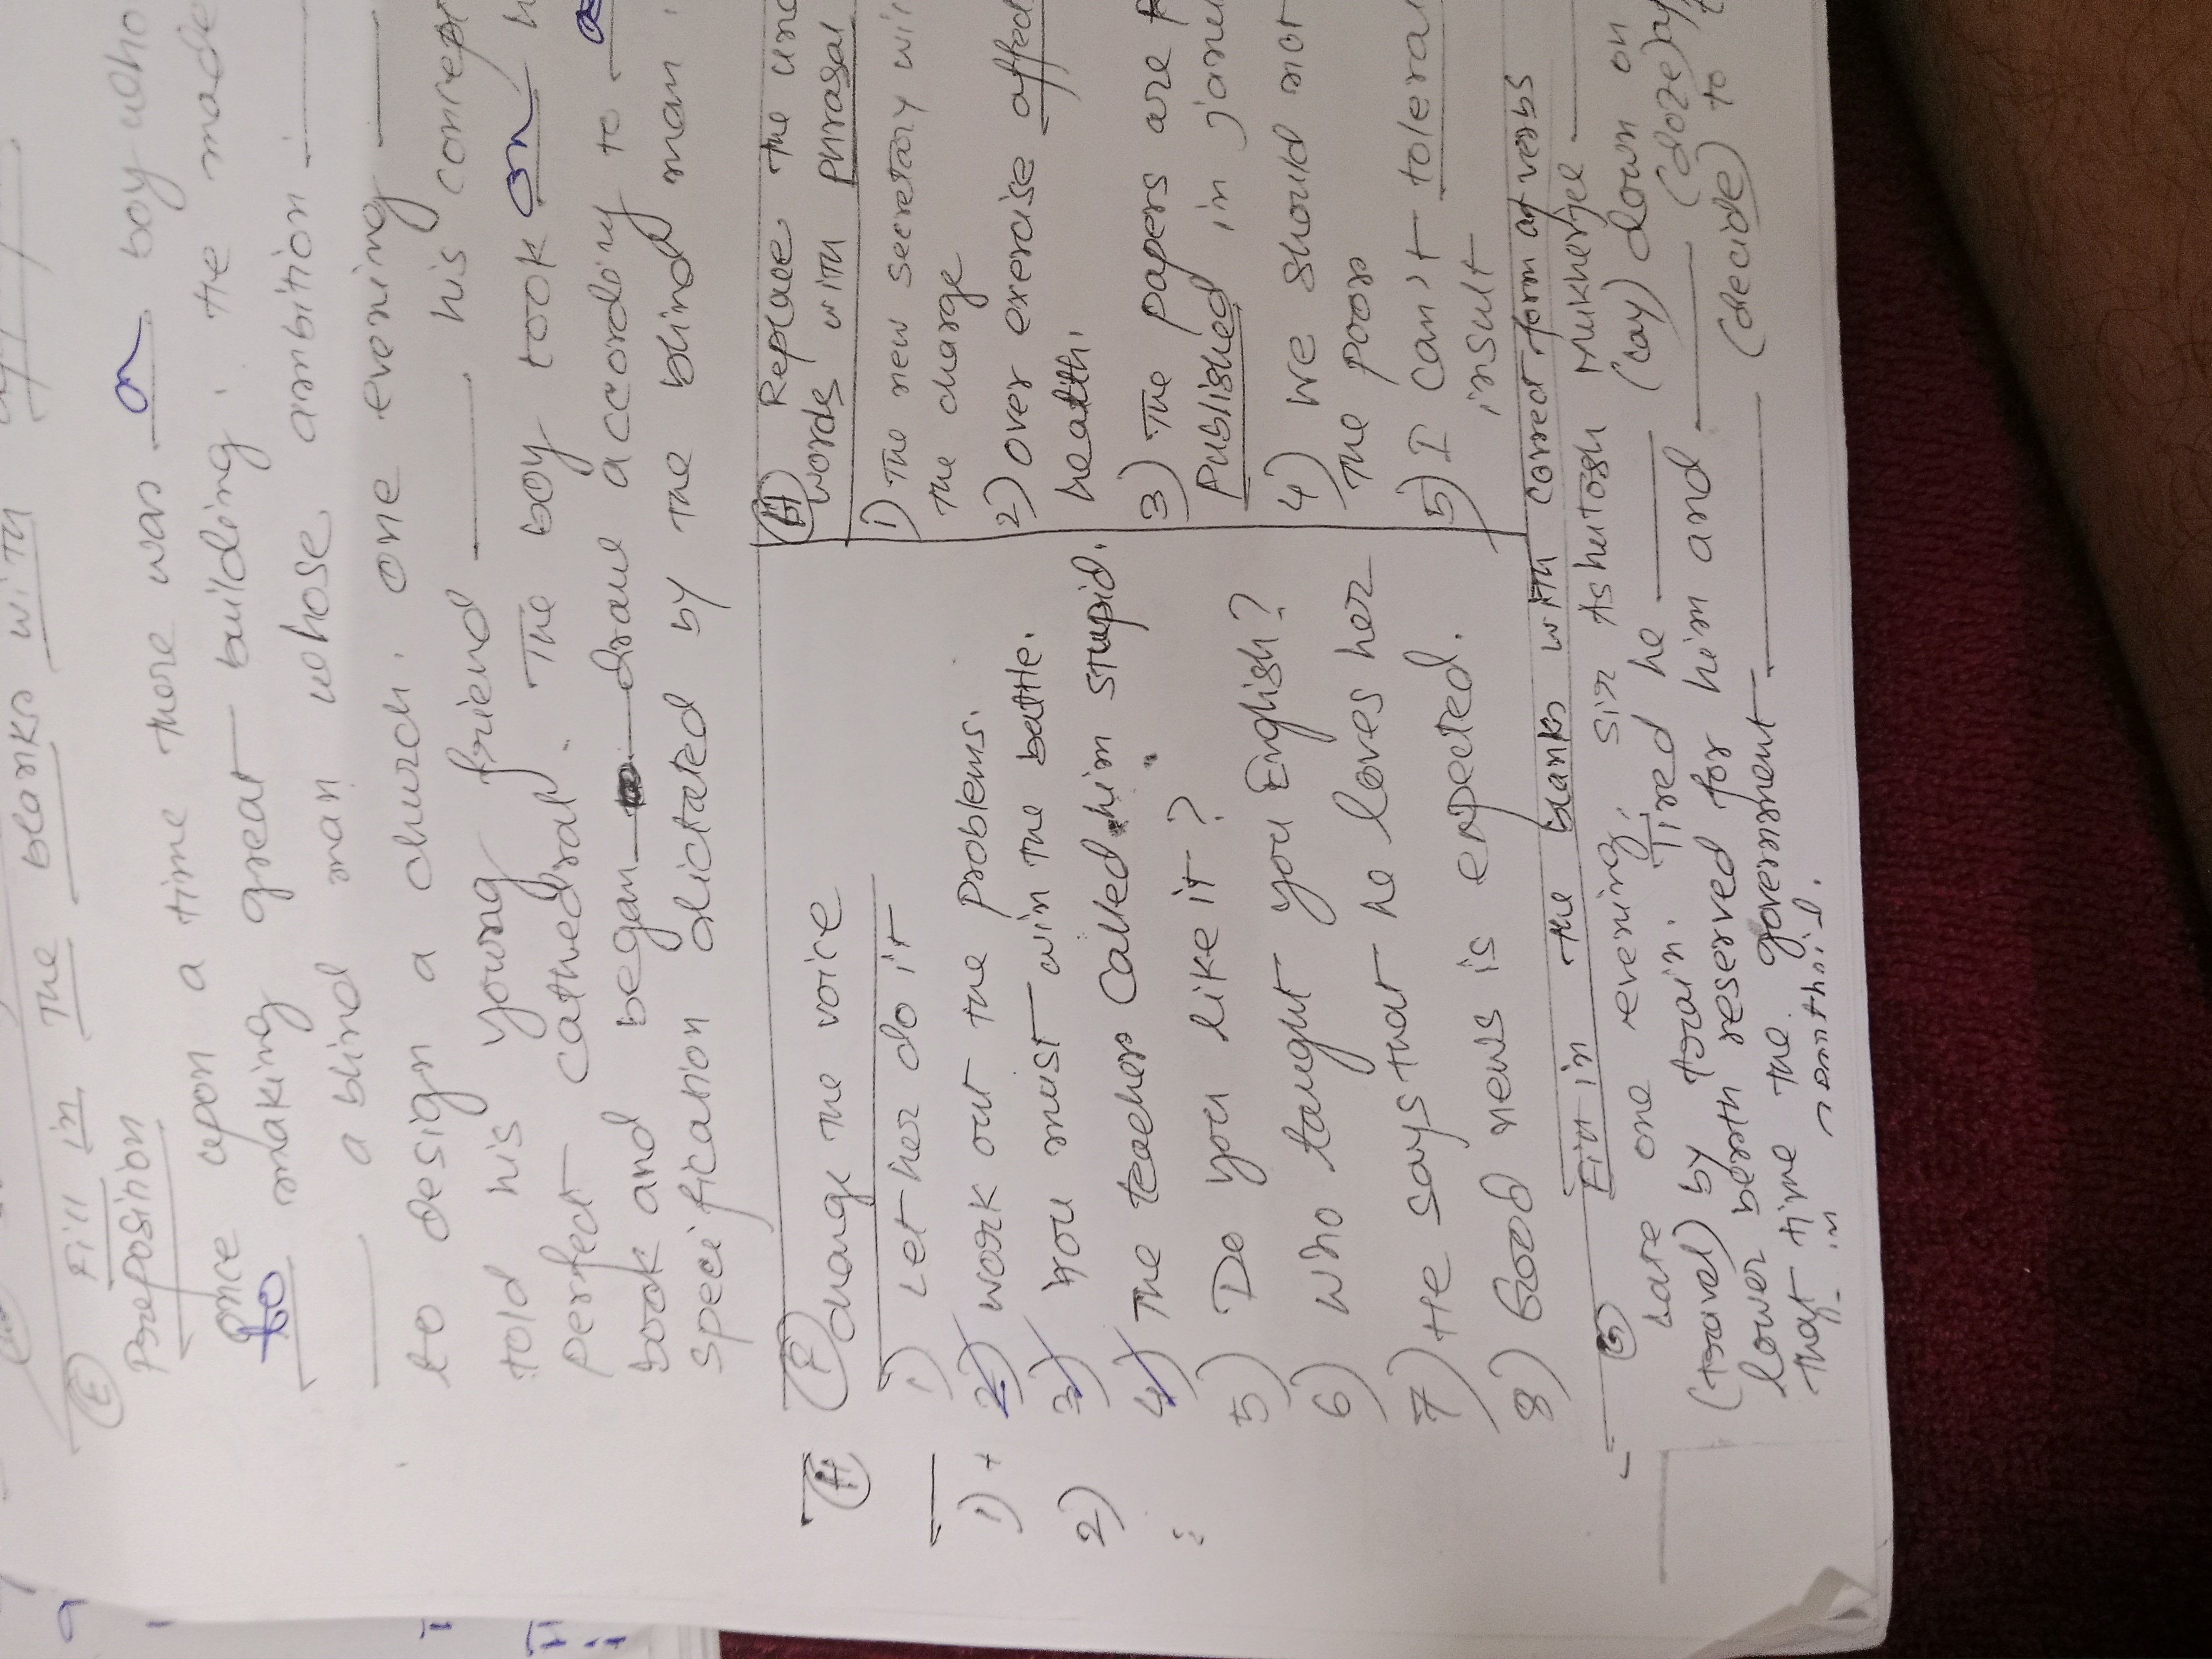 (E) Fill in the blanks with
Preposition
Once upon a time there was a boy who
to making great building. He made
a blind man whose ambition
to design a church. One evening
told his young friend his concept
perfect cathedral. The boy took on
book and began draw according to a
specification dictated by the blind man.
(F) Change the voice
1) Let her do it
2) Work out the problems.
3) You must win the battle.
4) The teacher called him stupid.
5) Do you like it?
6) Who taught you English?
7) He says that he loves her
8) Good news is expected.
(H) Replace the und
words with phrasal
1) The new secretary wi
the charge
2) Over exercise affed
health.
3) The papers are
Published in janu
4) We should not
the poor
5) I can't tolera
insult
(G) Fill in the blanks with correct form of verbs
Late one evening, Sir Ashutosh Mukherjee
(travel) by train. Tired he (lay) down on
lower berth reserved for him and (doze)
that time the government (decide) to
in
(H)
1)
2)